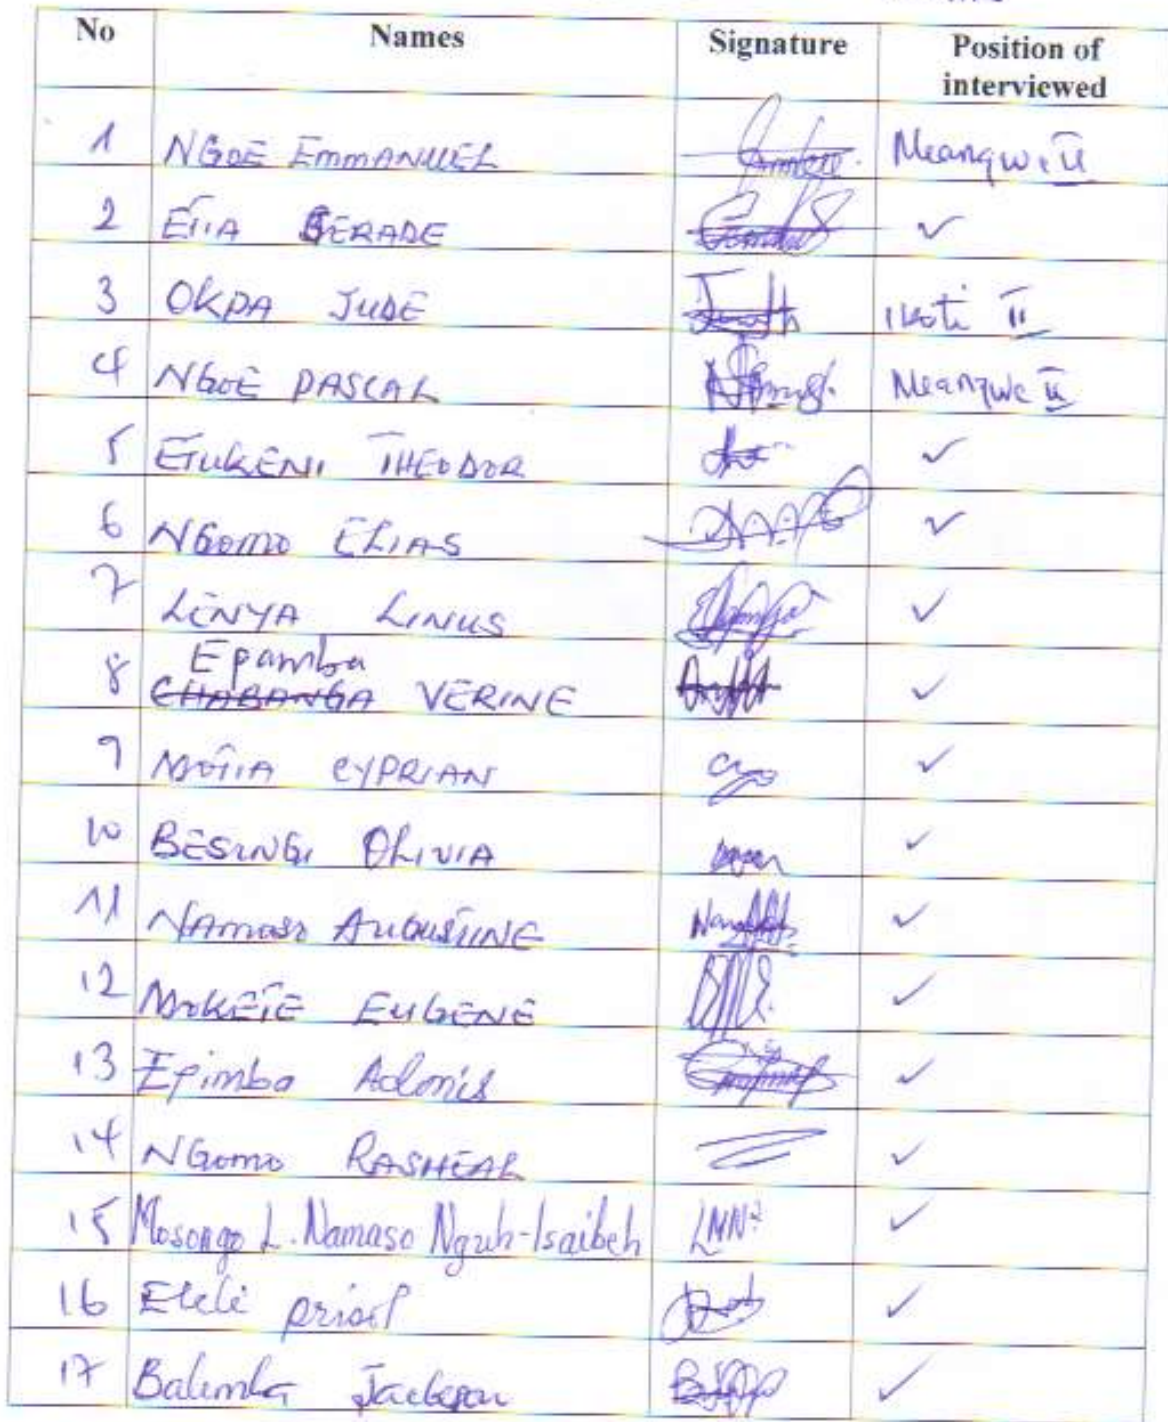 No Names Signature Position of
interviewed
1 NGOE EMMANUEL Meangwe II
2 ETIA GERADE ✓
3 OKPA JUDE Ikoti II
4 NGOE PASCAL Meangwe II
5 ETUKENI THEODOR ✓
6 NGOMO ELIAS ✓
7 LENYA LINUS ✓
Epamba
8 CHABANGA VERINE ✓
9 MOTIA CYPRIAN ✓
10 BESINGI OLIVIA ✓
11 NAMASO AUGUSTINE ✓
12 MOKETE EUGENE ✓
13 Epimba Adonis ✓
14 NGOMO RASHEAL ✓
15 Mosongo L. Namaso Nguh-Isaibeh LNN ✓
16 Eleli ✓
17 Balemba Jackson ✓